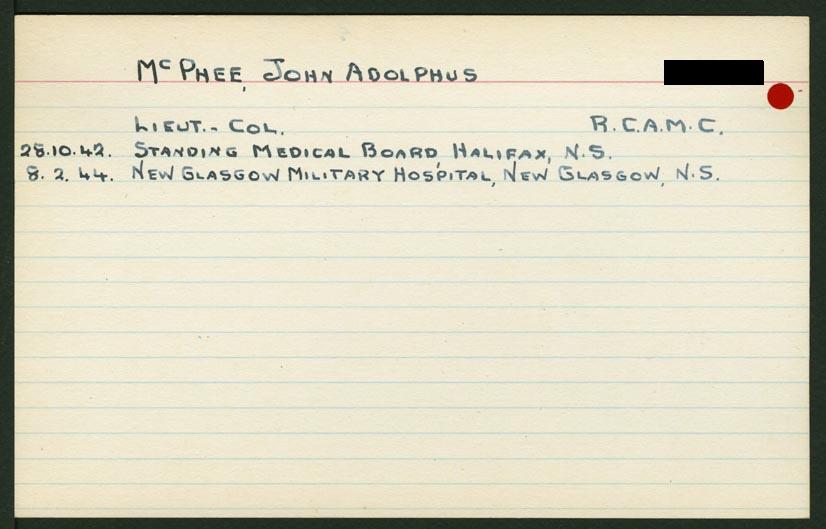 McPHEE, JOHN ADOLPHUS
LIEUT.- COL. R.C.A.M.C.
28.10.42. STANDING MEDICAL BOARD, HALIFAX, N.S.
8. 2. 44. NEW GLASGOW MILITARY HOSPITAL, NEW GLASGOW, N.S.